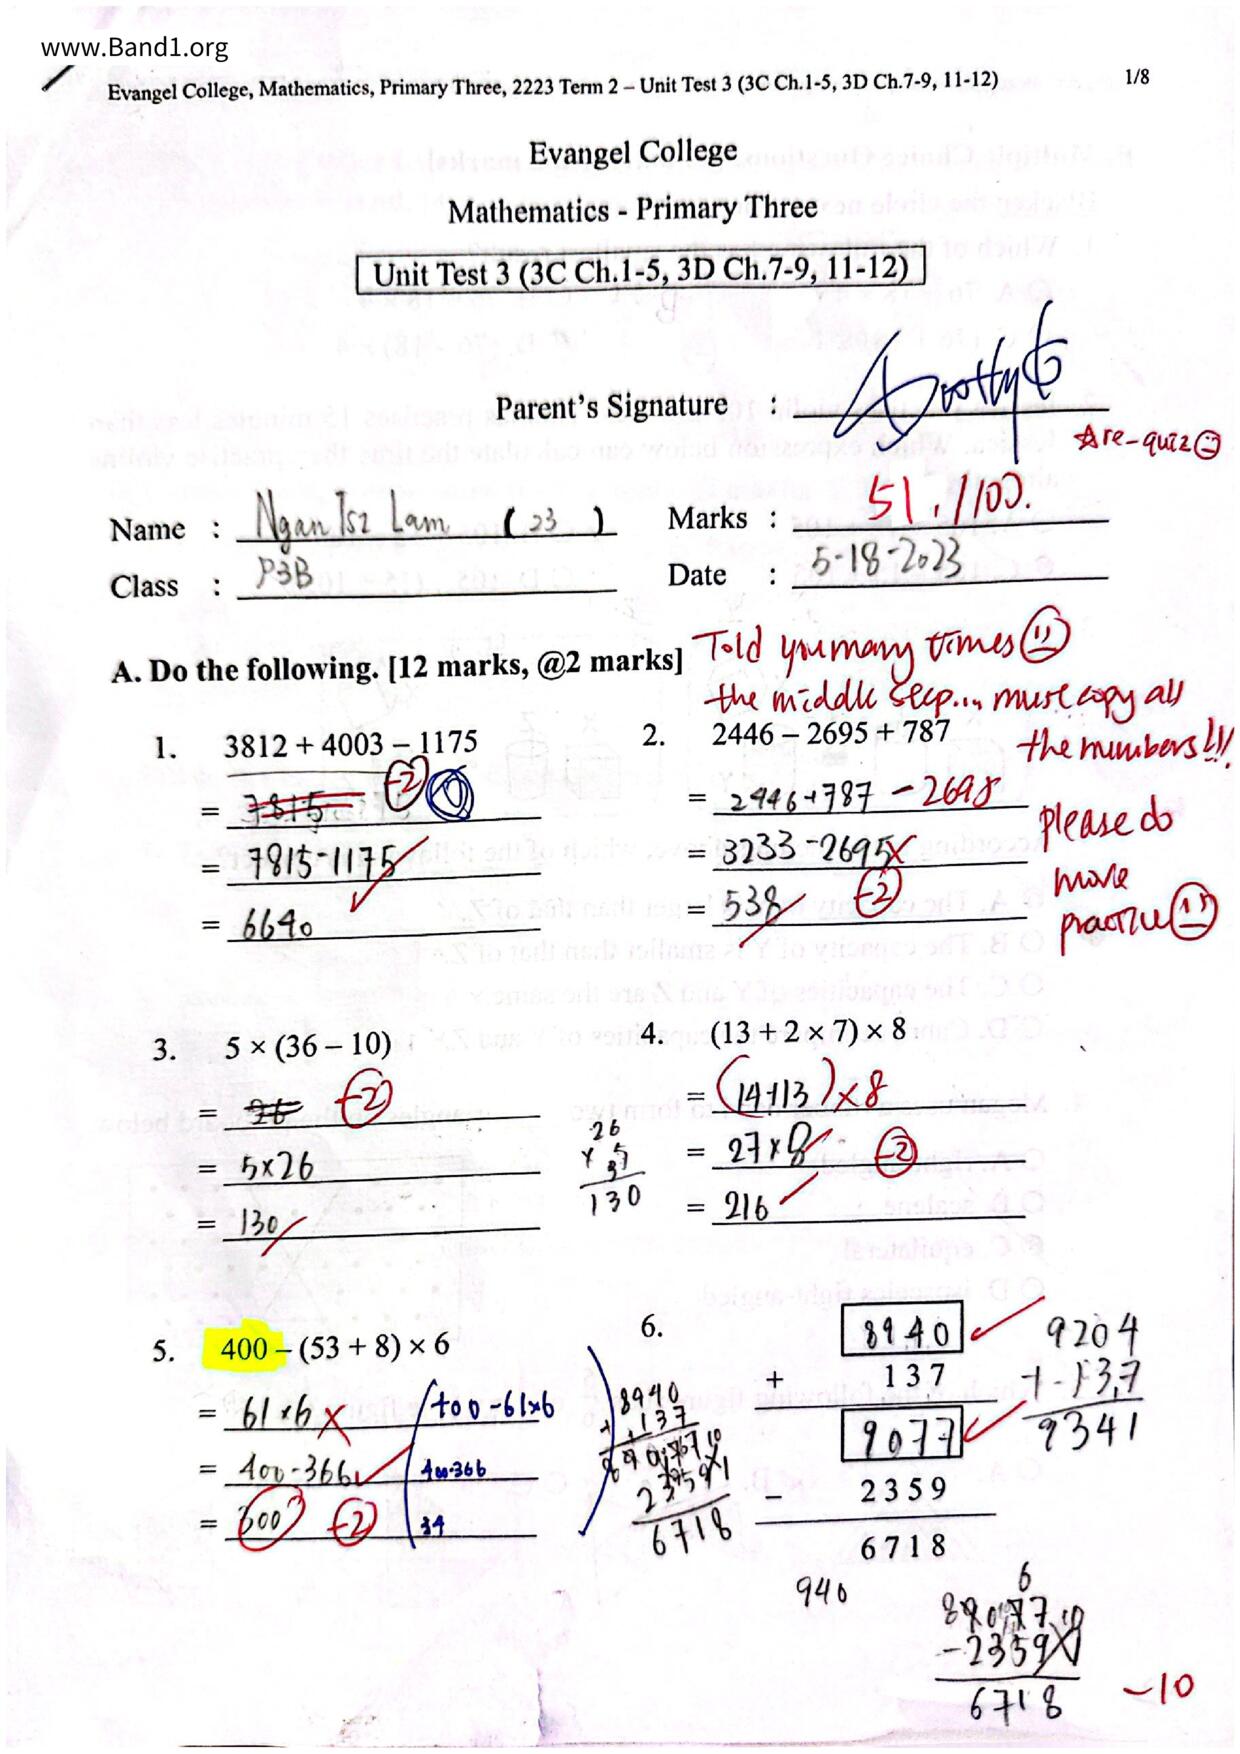 www.Band1.org
Evangel College, Mathematics, Primary Three, 2223 Term 2 – Unit Test 3 (3C Ch.1-5, 3D Ch.7-9, 11-12) 1/8
Evangel College
Mathematics - Primary Three
Unit Test 3 (3C Ch.1-5, 3D Ch.7-9, 11-12)
Parent's Signature :
re-quiz
Name : Ngan Tsz Lam (23) Marks : 51/100.
Class : P3B Date : 5-18-2023
A. Do the following. [12 marks, @2 marks]
Told you many times
the middle step... must copy all
the numbers!!!
please do
more
practice
1. 3812 + 4003 – 1175
= 7815 -2
= 7815-1175
= 6640
2. 2446 – 2695 + 787
= 2446+787 - 2698
= 3233-2695
= 538 -2
3. 5 × (36 – 10)
= 26 -2
= 5×26
= 130
26
× 5
130
4. (13 + 2 × 7) × 8
= (14+13)×8
= 27×8 -2
= 216
5. 400 – (53 + 8) × 6
= 61×6 400-61×6
= 400-366 400-366
= 300 -2 34
6. 8940
+ 137
9077
– 2359
6718
8940
+137
6718
9204
+137
9341
940
-2359
6718
-10